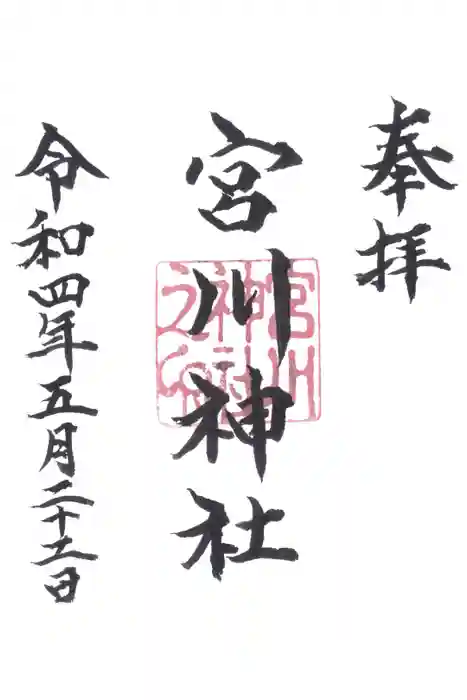 奉拝
宮川神社
宮川
神社
之印
令和四年五月二十二日